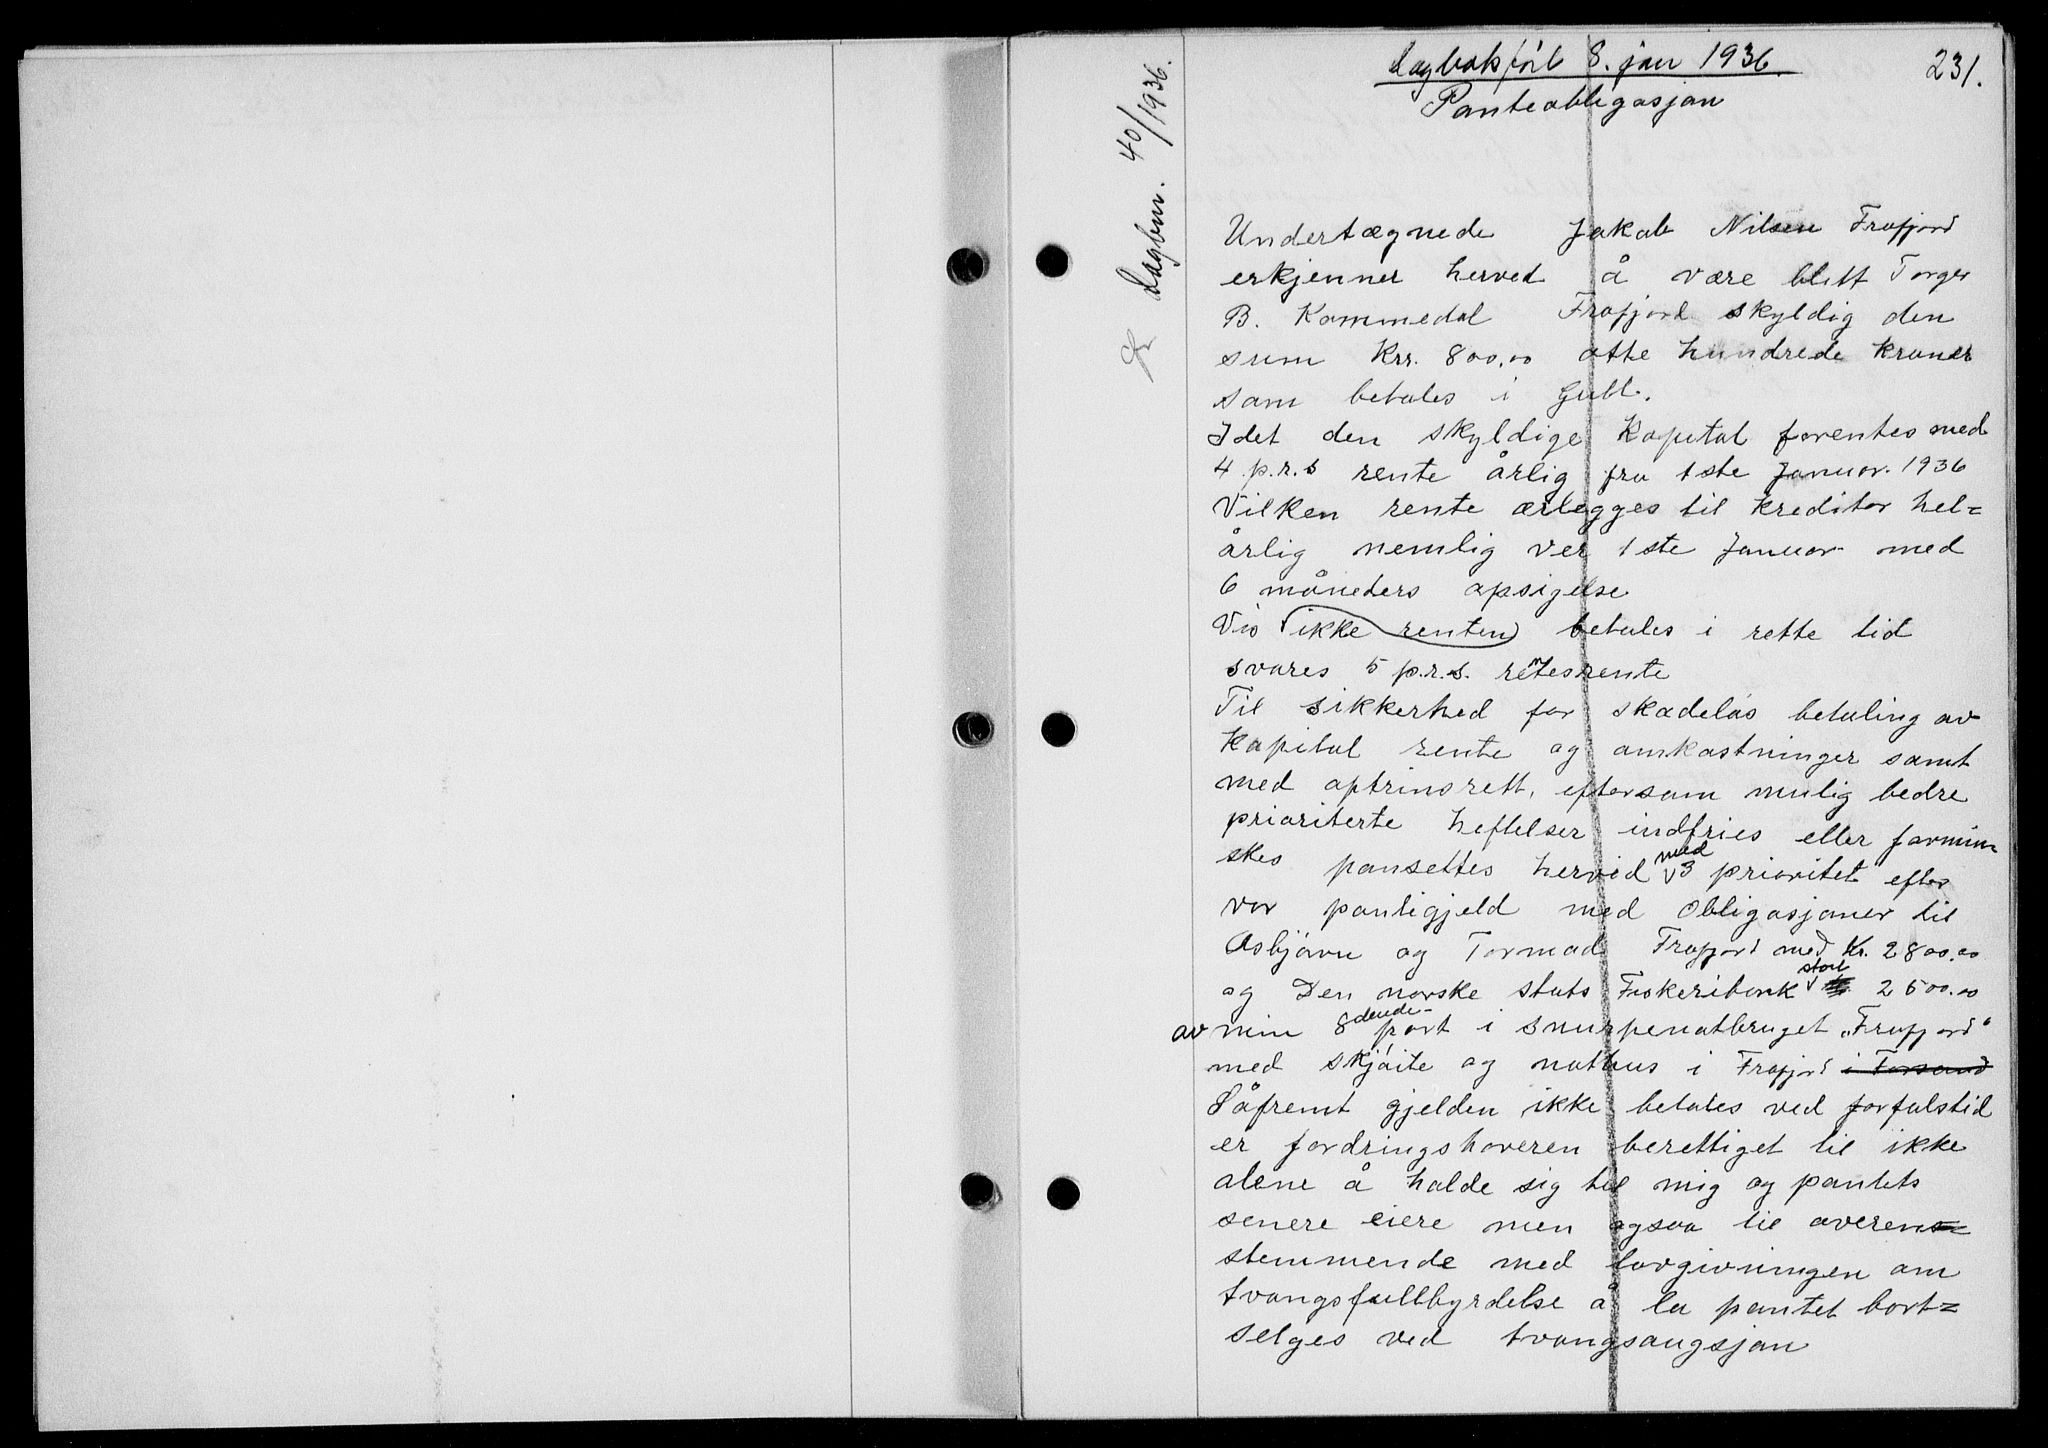 dagbokført 8. jan 1936
231.
Panteobligasjon
Dagbnr. 40/1936.
Undertægnede Jakob Nilsen Frafjord
erkjenner herved å være blitt Torger
B. Kommedal Frafjord skyldig den
sum Krr. 800.00 otte hundrede kroner
som betales i Gull.
Idet den skyldige Kapital forentes med
4 p.r.s rente årlig fra 1ste Januar. 1936
Vilken rente ærlegges til kreditor hel=
årlig nemlig ver 1ste Januar med
6 måneders opsigelse
Vis ikke renten betales i rette tid
svares 5 p.r.s. rentesrente
Til sikkerhed for skadeløs betaling av
Kapital rente og omkostninger samt
med optrinsrett, eftersom mulig bedre
prioriterte heftelser indfries eller formin=
skes pansettes herved med 3 prioritet efter
vor pantigjeld med Obligasjoner til
Asbjørn og Tormod Frafjord med Kr. 2800.00
og Den norske stats Fiskeribank stort 2500.00
av min 8dende- part i snurpenotbruget "Frafjord"
med skjøite og nothus i Frafjord i Forsand
Såfremt gjelden ikke betales ved forfalstid
er fordringshaveren berettiget til ikke
alene å holde sig til mig og pantets
senere eiere men ogsaa til overens=
stemmende med lovgivningen om
tvangsfullbyrdelse å la pantet bort=
selges ved tvangsaugsjon